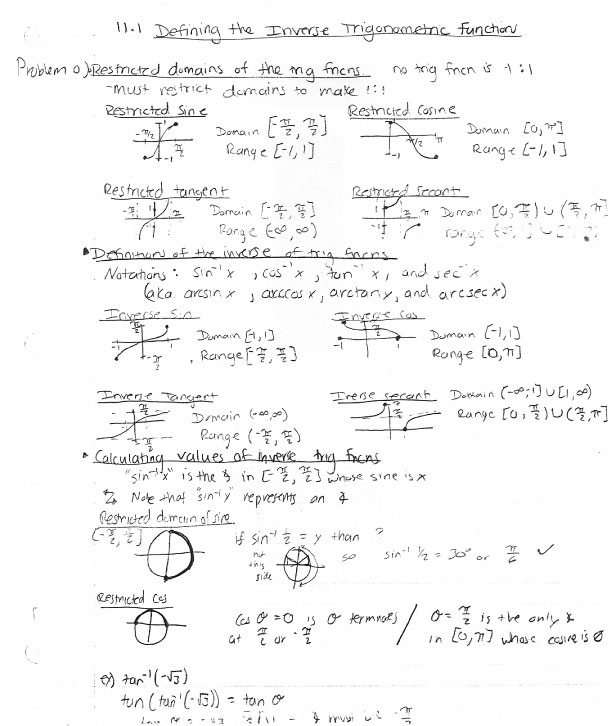 11.1 Defining the Inverse Trigonometric Function
Problem o) Restricted domains of the trig fncns. no trig fncn is 1:1
-must restrict domains to make 1:1
Restricted Sine
Restricted Cosine
-π/2
π/2
-1
Domain [-π/2, π/2]
Range [-1, 1]
π/2
π
-1
Domain [0, π]
Range [-1, 1]
Restricted tangent
Restricted secant
Domain [-π/2, π/2]
Range (-∞, ∞)
Domain [0, π/2) ∪ (π/2, π]
range
Definitions of the inverse of trig fncns
Notations: sin⁻¹x, cos⁻¹x, tan⁻¹x, and sec⁻¹x
(aka. arcsin x, arccos x, arctan x, and arcsec x)
Inverse Sin
Inverse Cos
π/2
-1
1
-π/2
Domain [-1, 1]
Range [-π/2, π/2]
π/2
-1
1
Domain [-1, 1]
Range [0, π]
Inverse Tangent
Inerse secant
Domain (-∞, ∞)
Range (-π/2, π/2)
Domain (-∞, -1] ∪ [1, ∞)
Range [0, π/2) ∪ (π/2, π]
Calculating values of inverse trig fncns
"sin⁻¹x" is the ∡ in [-π/2, π/2] whose sine is x
Note that "sin⁻¹y" represents an ∡
Restricted domain of sine
[-π/2, π/2]
if sin⁻¹ 1/2 = y than ?
not
this
side
so sin⁻¹ 1/2 = 30° or π/6 ✓
Restricted Cos
Cos θ = 0 is θ terminates
at π/2 or -π/2
θ = π/2 is the only ∡
in [0, π] whose cosine is 0
ex) tan⁻¹(-√3)
tan (tan⁻¹(-√3)) = tan θ